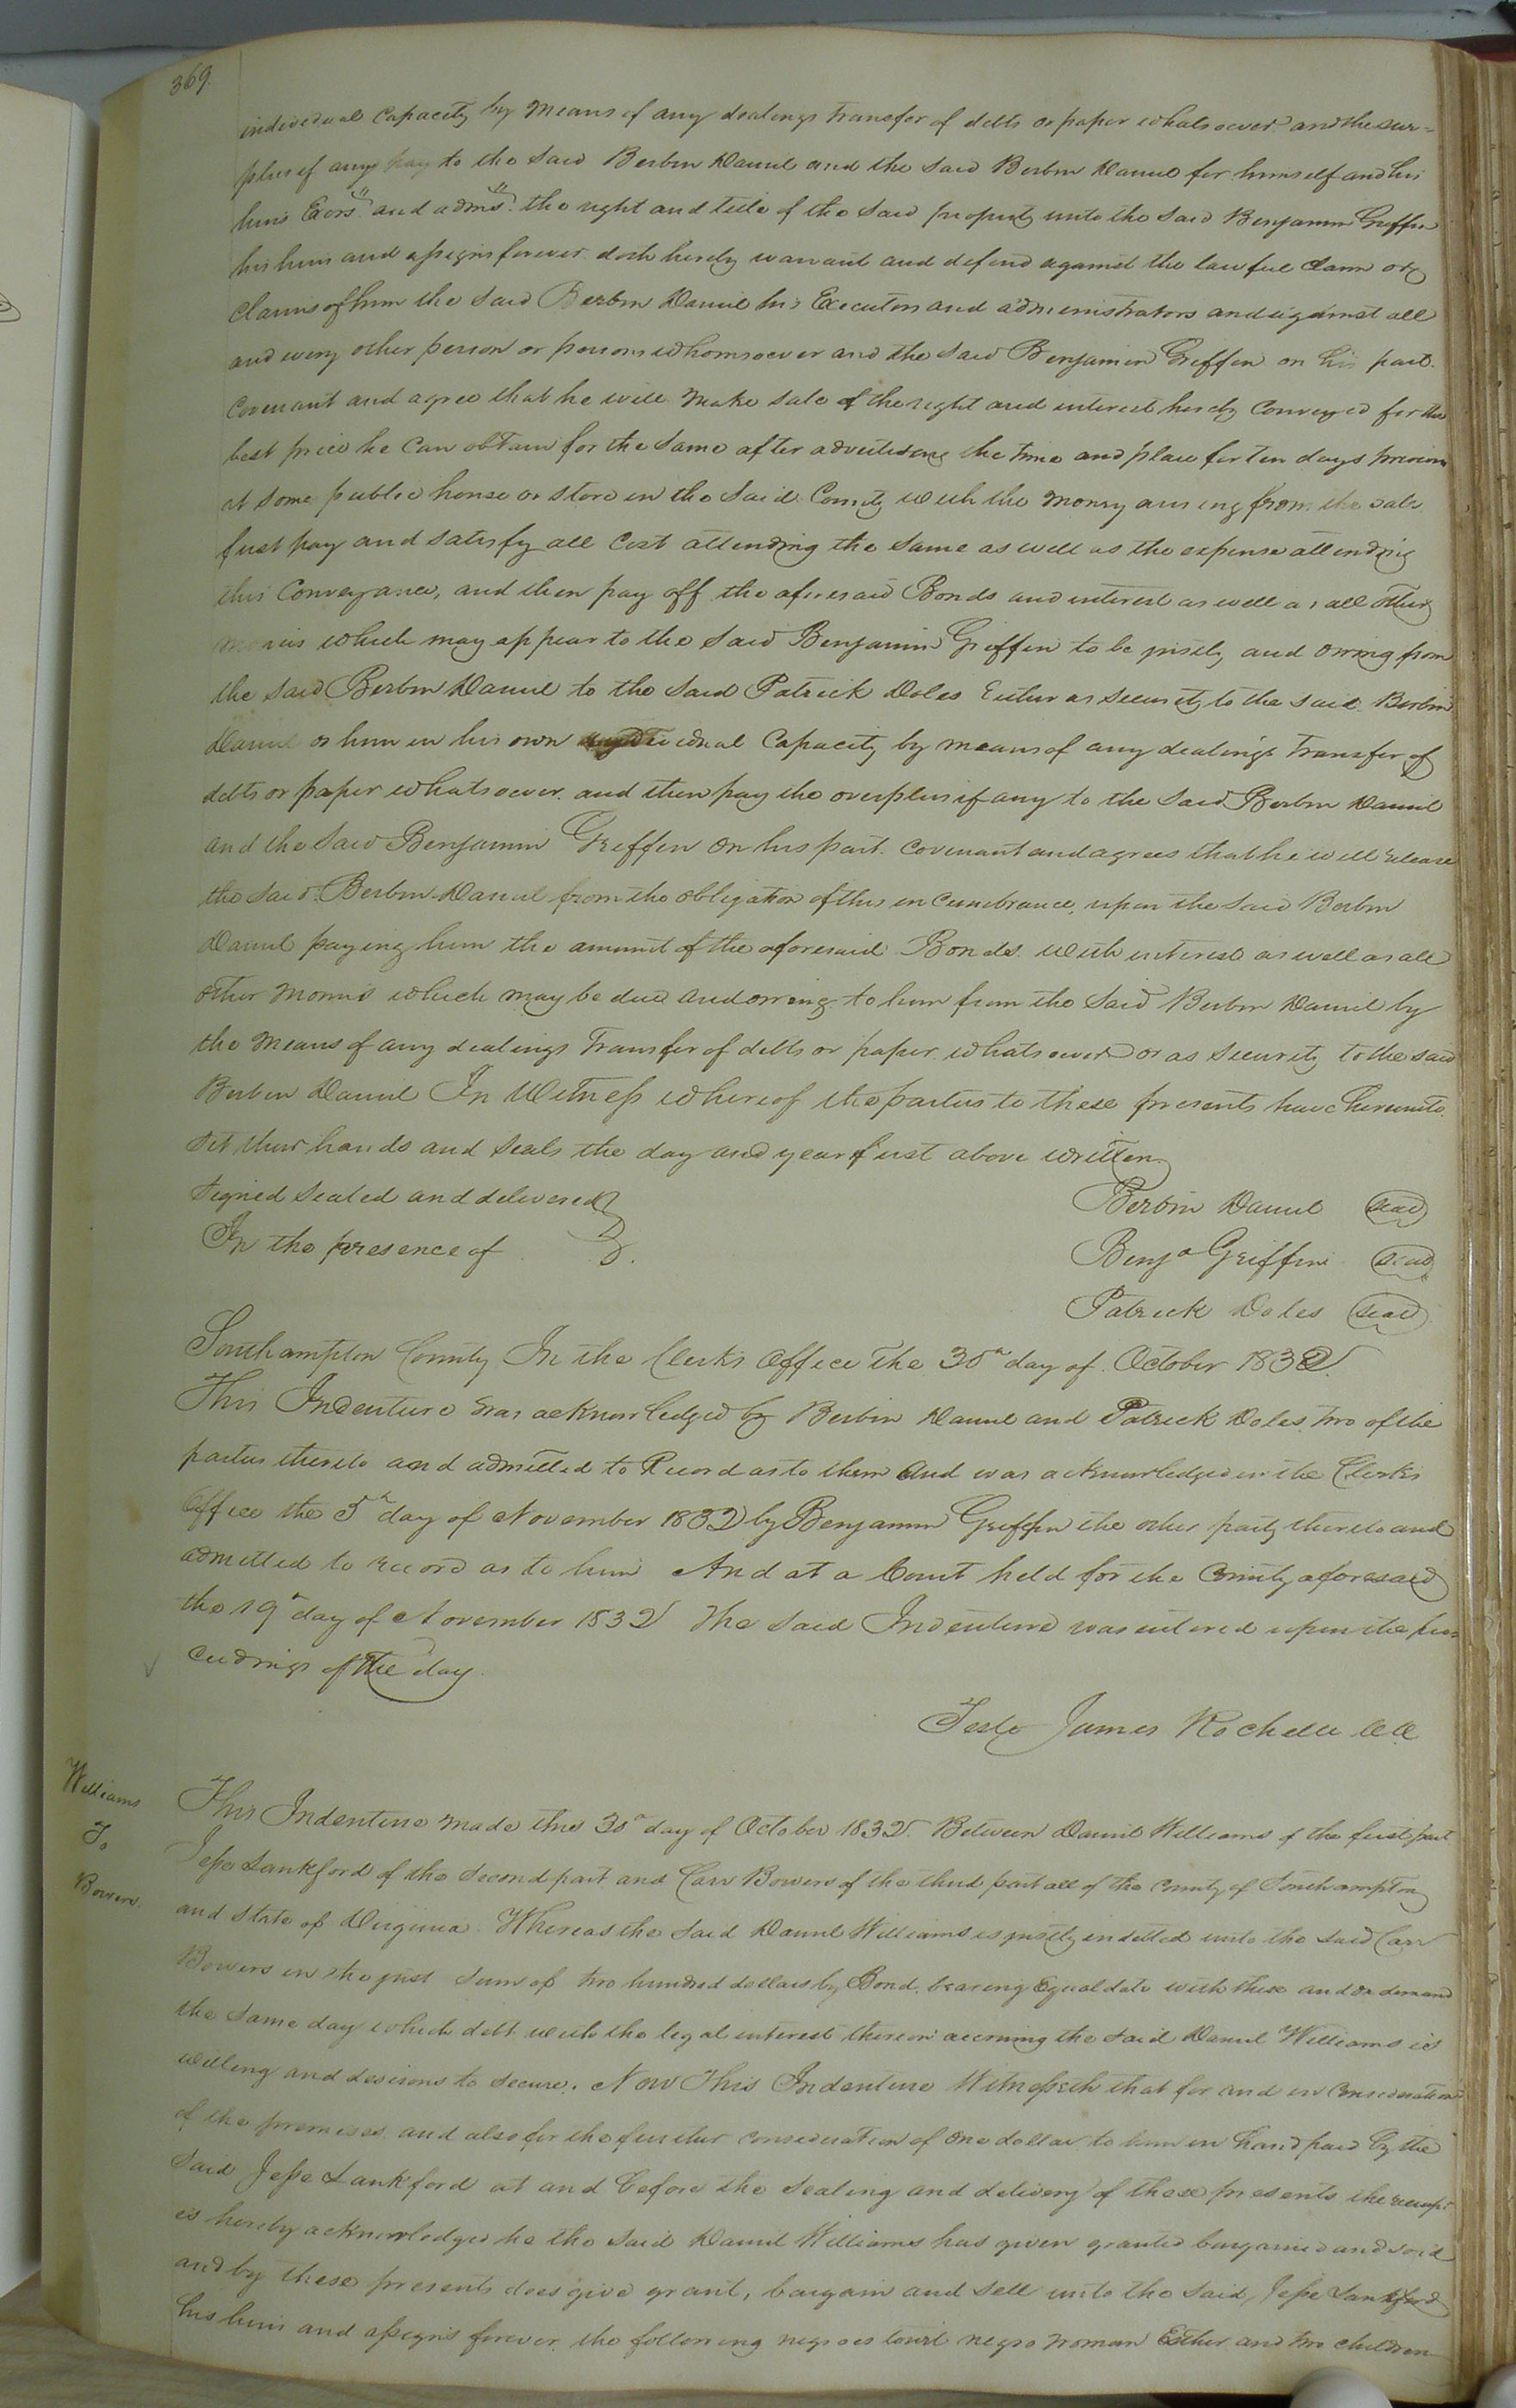 369.
individual Capacity by Means of any dealings transfer of debts or paper whatsoever and the sur=
plus if any pay to the said Berbin Daniel and the said Berbin Daniel for himself and his
heirs Exors. and adms. the right and title of the said property unto the said Benjamin Griffin
his heirs and assigns forever doth hereby warrant and defend against the lawful claim or
claims of him the said Berbin Daniel his Executors and administrators and against all
and every other person or persons whomsoever and the said Benjamin Griffin on his part
Covenant and agree that he will make sale of the right and interest hereby Conveyed for the
best price he can obtain for the same after advertising the time and place for ten days previous
at some public house or store in the said County with the money arising from the sale
first pay and satisfy all Cost attending the same as well as the expense attending
this Conveyance, and then pay off the aforesaid Bonds and interest as well as all other
monies which may appear to the said Benjamin Griffin to be justly and owing from
the said Berbin Daniel to the said Patrick Doles Either as security to the said Berbin
Daniel or him in his own individual Capacity by means of any dealings transfer of
debts or paper whatsoever. and then pay the overplus if any to the said Berbin Daniel
and the said Benjamin Griffin on his part. covenant and agrees that he will release
the said Berbin Daniel from the obligation of this incumbrance, upon the said Berbin
Daniel paying him the amount of the aforesaid Bonds. with interest as well as all
other monies which may be due and owing to him from the said Berbin Daniel by
the Means of any dealings Transfer of debts or paper whatsoever or as security to the said
Berbin Daniel In Witness whereof the parties to these presents have hereunto
set their hands and seals the day and year first above written
Signed sealed and delivered
In the presence of
Berbin Daniel seal
Benja Griffin seal
Patrick Doles seal
Southampton County In the Clerks Office The 30th day of October 1832
This Indenture was acknowledged by Berbin Daniel and Patrick Doles two of the
parties thereto and admitted to Record as to them and was acknowledged in the Clerks
Office the 5th day of November 1832 by Benjamin Griffin the other party thereto and
admitted to record as to him And at a Court held for the County aforesaid
the 19th day of November 1832 The said Indenture was entered upon the pro=
ceedings of the day.
Teste James Rochelle CC
Williams
To
Bowers.
This Indenture made this 30th day of October 1832. Between Daniel Williams of the first part
Jesse Lankford of the second part and Carr Bowers of the third part all of the County of Southampton
and State of Virginia. Whereas the said Daniel Williams is justly indebted unto the said Carr
Bowers in the just sum of two hundred dollars by Bond, bearing Equal date with these and on demand
the same day which debt with the legal interest thereon accruing the said Daniel Williams is
willing and desirous to secure. Now This Indenture Witnesseth that for and in Consideration
of the premises and also for the further consideration of one dollar to him in hand paid by the
said Jesse Lankford at and before the sealing and delivery of these presents the receipt
is hereby acknowledged he the said Daniel Williams has given granted bargained and sold
and by these presents does give grant, bargain and sell unto the said Jesse Lankford
his heirs and assigns forever the following negroes towit negro woman Esther and two children